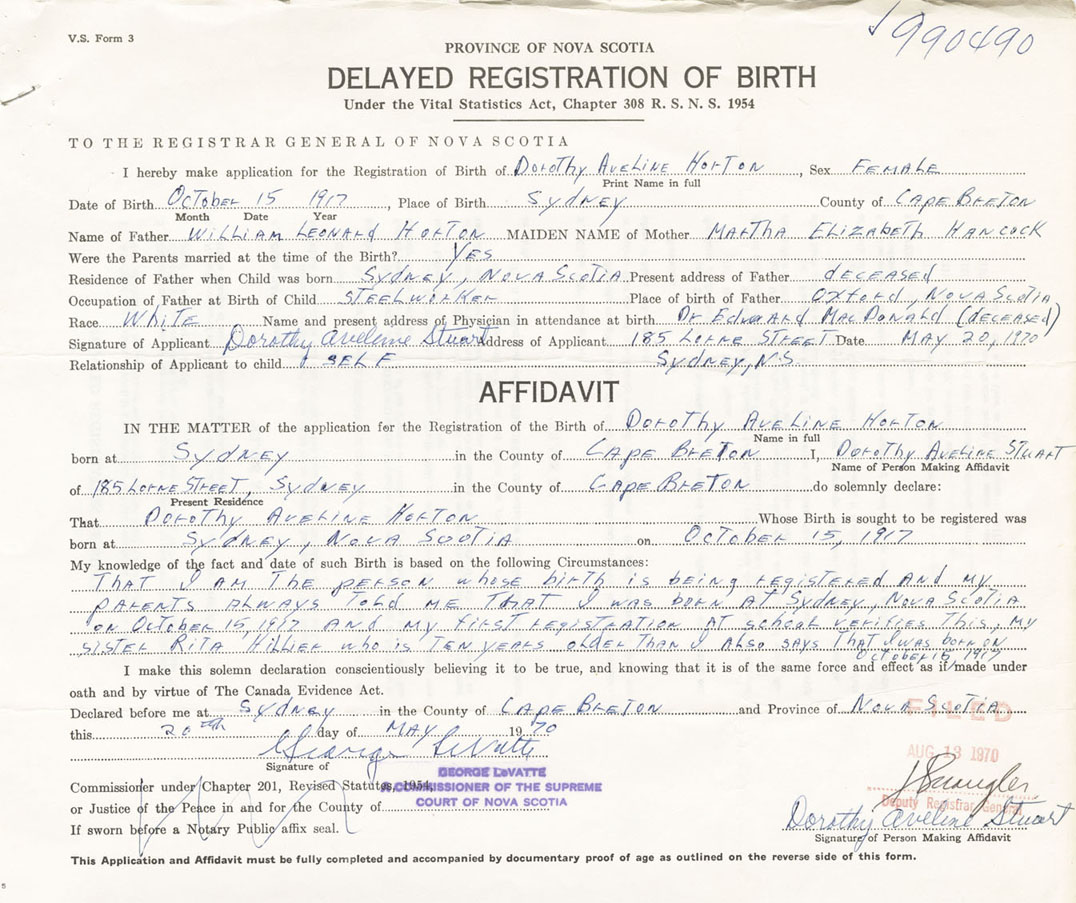 V.S. Form 3
990490
PROVINCE OF NOVA SCOTIA
DELAYED REGISTRATION OF BIRTH
Under the Vital Statistics Act, Chapter 308 R. S. N. S. 1954
TO THE REGISTRAR GENERAL OF NOVA SCOTIA
I hereby make application for the Registration of Birth of Dorothy Aveline Horton, Sex Female
Print Name in full
Date of Birth October 15 1917, Place of Birth Sydney County of Cape Breton
Month Date Year
Name of Father William Leonard Horton MAIDEN NAME of Mother Martha Elizabeth Hancock
Were the Parents married at the time of the Birth? Yes
Residence of Father when Child was born Sydney, Nova Scotia Present address of Father deceased
Occupation of Father at Birth of Child Steelworker Place of birth of Father Oxford, Nova Scotia
Race White Name and present address of Physician in attendance at birth Dr Edward MacDonald (deceased)
Signature of Applicant Dorothy Aveline Stuart Address of Applicant 185 Lorne Street Date May 20, 1970
Relationship of Applicant to child Self Sydney, N.S.
AFFIDAVIT
IN THE MATTER of the application for the Registration of the Birth of Dorothy Aveline Horton
Name in full
born at Sydney in the County of Cape Breton I, Dorothy Aveline Stuart
Name of Person Making Affidavit
of 185 Lorne Street, Sydney in the County of Cape Breton do solemnly declare:
Present Residence
That Dorothy Aveline Horton Whose Birth is sought to be registered was
born at Sydney, Nova Scotia on October 15, 1917
My knowledge of the fact and date of such Birth is based on the following Circumstances:
That I am the person whose birth is being registered and my
parents always told me that I was born at Sydney, Nova Scotia
on October 15, 1917 and my first registration at school verifies this, my
sister Rita Hillier who is ten years older than I also says that I was born on
October 15, 1917
I make this solemn declaration conscientiously believing it to be true, and knowing that it is of the same force and effect as if made under
oath and by virtue of The Canada Evidence Act.
Declared before me at Sydney in the County of Cape Breton and Province of Nova Scotia
FILED
this 20th day of May 1970
AUG 13 1970
George LeVatte
Signature of
GEORGE LeVATTE
Commissioner under Chapter 201, Revised Statutes, 1954,
A COMMISSIONER OF THE SUPREME
COURT OF NOVA SCOTIA
or Justice of the Peace in and for the County of
Deputy Registrar General
If sworn before a Notary Public affix seal.
Dorothy Aveline Stuart
Signature of Person Making Affidavit
This Application and Affidavit must be fully completed and accompanied by documentary proof of age as outlined on the reverse side of this form.
5